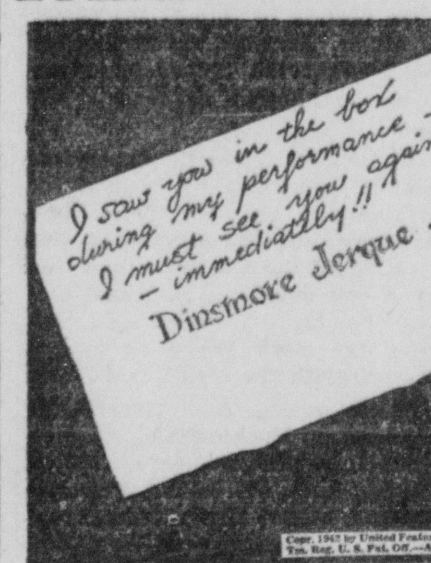 I saw you in the box
during my performance -
I must see you again
- immediately!!
Dinsmore Jerque
Copr. 1942 by United Featur
Tm. Reg. U. S. Pat. Off.—A